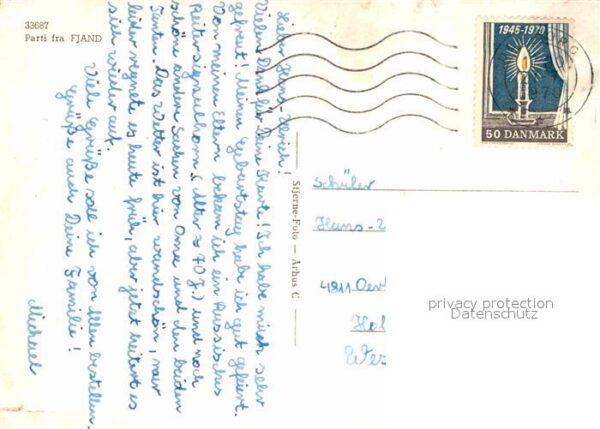 33687
Parti fra FJAND
Lieber Hans-Ulrich!
Vielen Dank für Deine Karte! Ich habe mich sehr
gefreut! Meinen Geburtstag habe ich gut gefeiert.
Von meinen Eltern bekam ich ein Russisches
Reitersignalhorn (Alter ≈ 70 J.) und noch
schöne andere Sachen von Oma und den beiden
Tanten. Das Wetter ist hier wundschön, nur
leider regnete es heute früh, aber jetzt heitert es
sich wieder auf.
Viele Grüße soll ich von allen bestellen.
Grüße auch Deine Familie!
Michael
Stjerne-Foto - Århus C
1945-1970
50 DANMARK
Schüler
Hans-
4811 Oer
Wes
privacy protection
Datenschutz